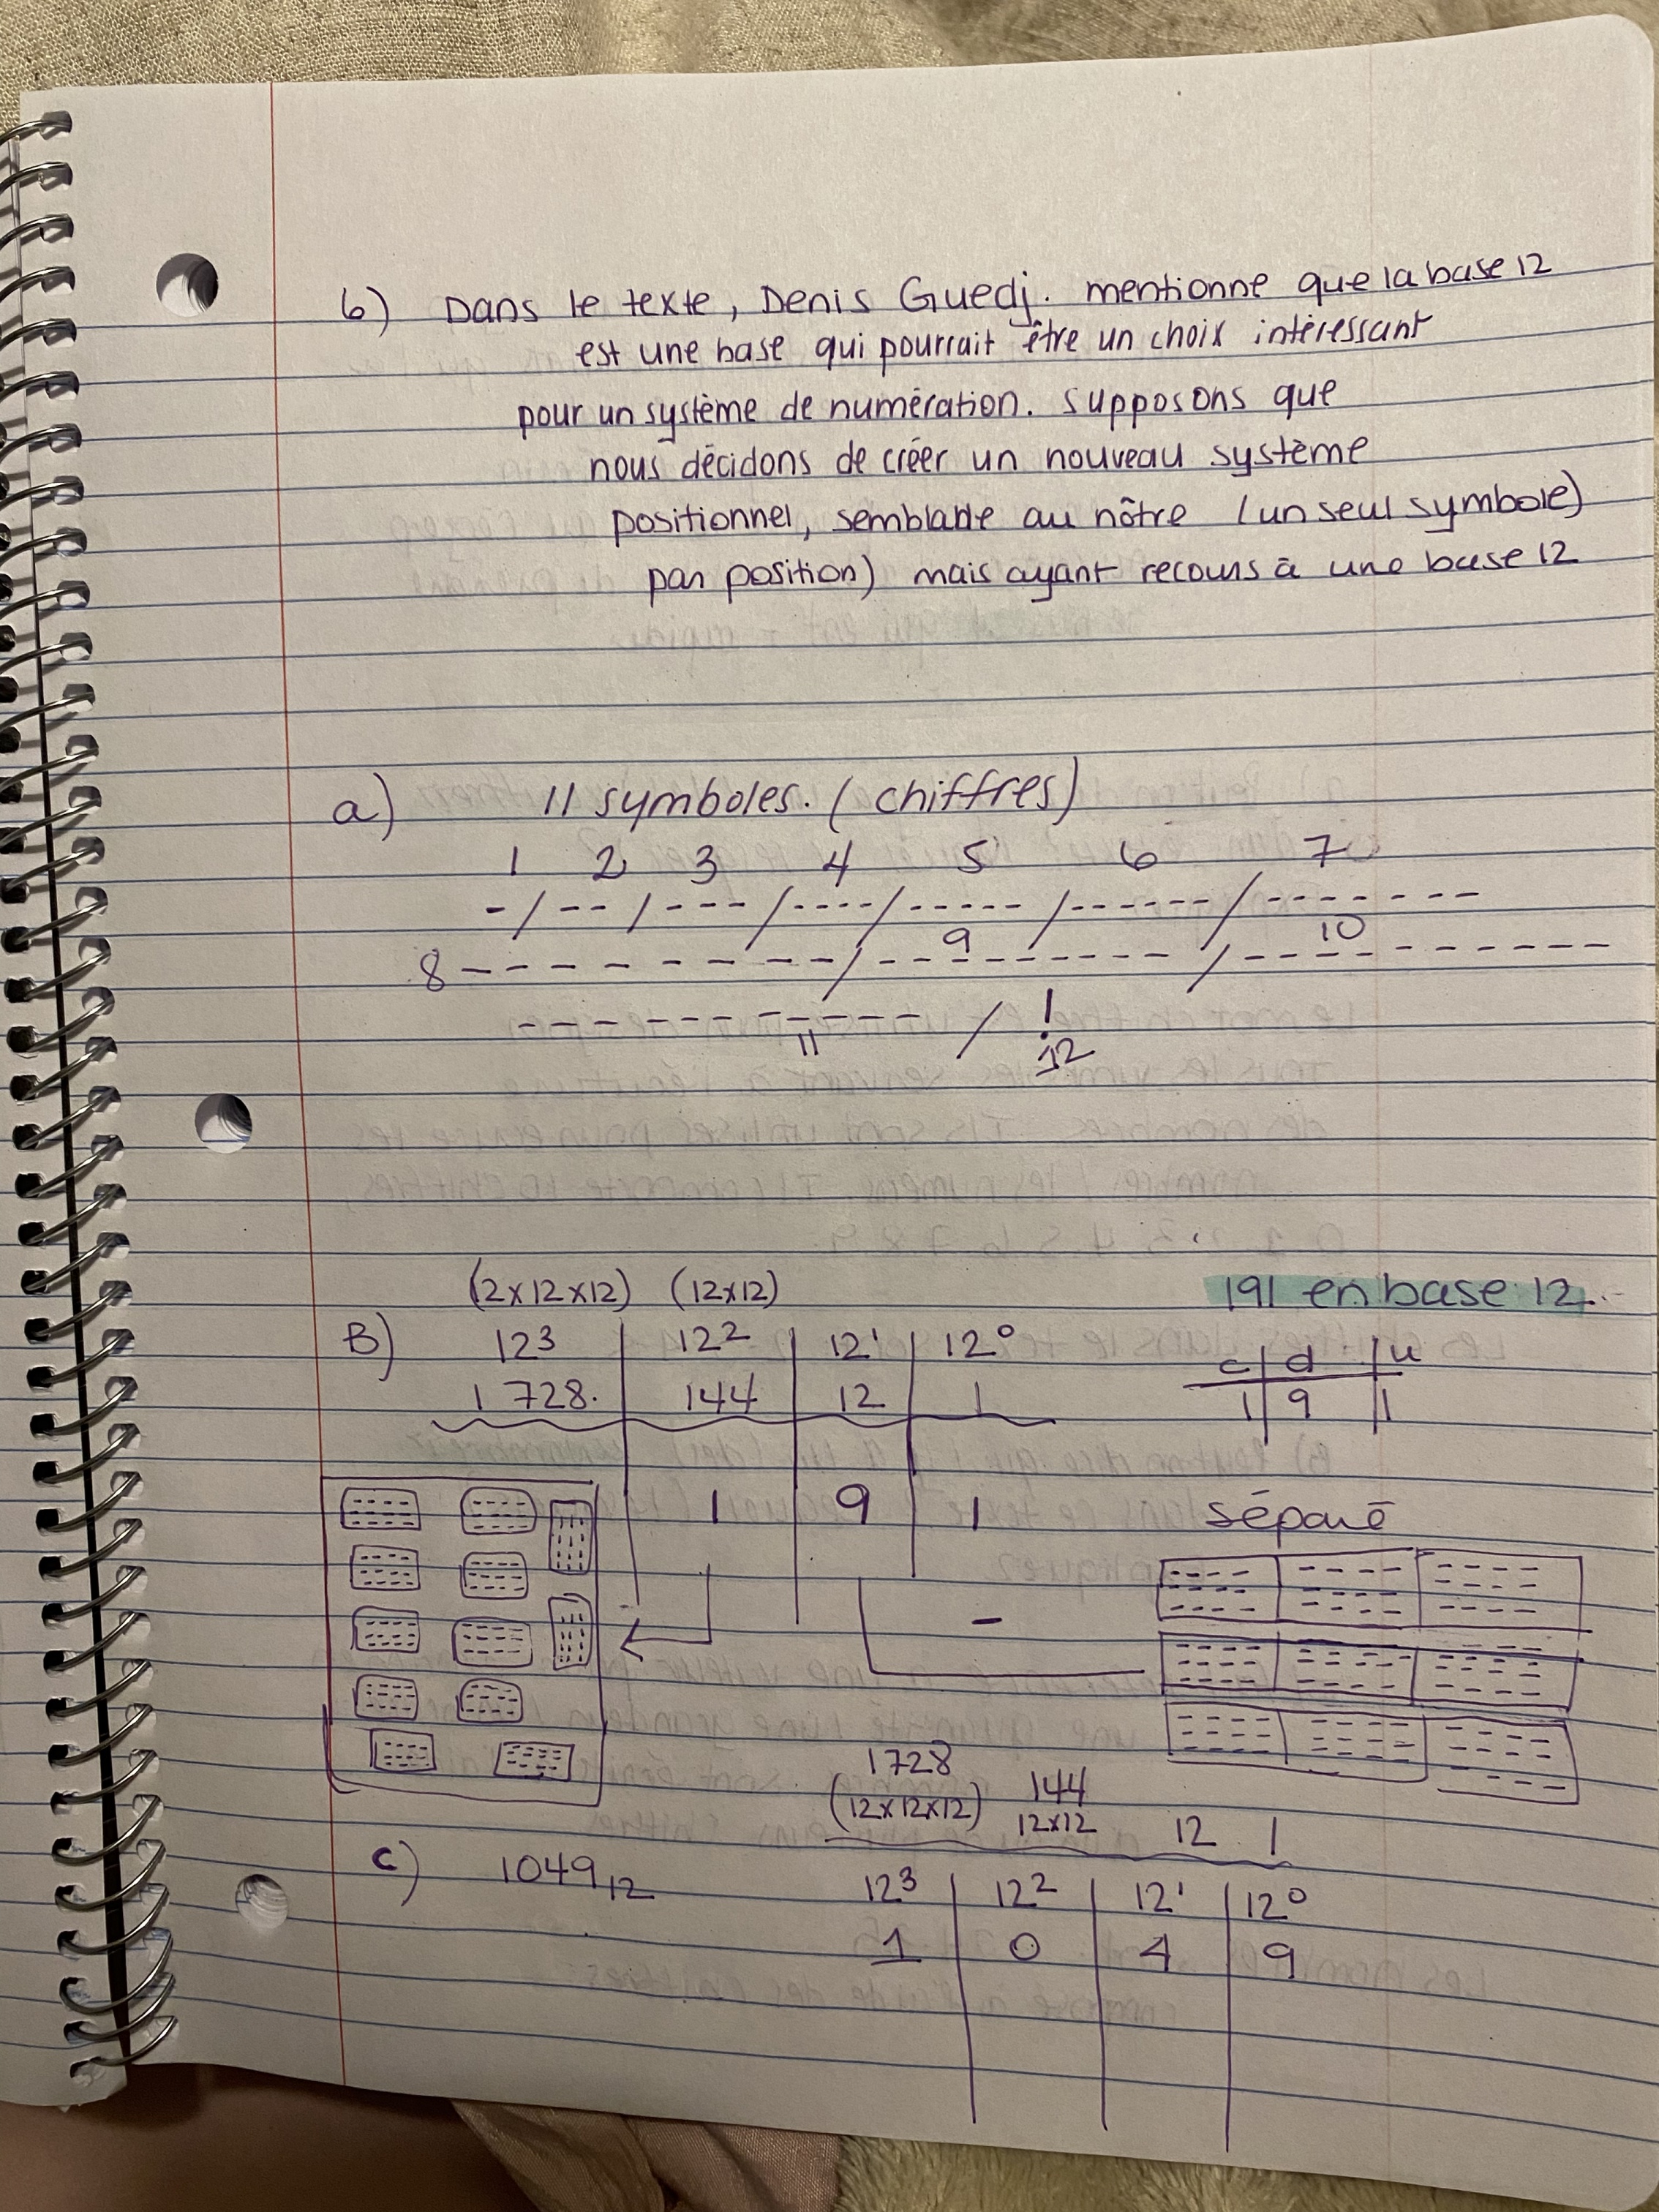 6) Dans le texte, Denis Guedj. mentionne que la base 12
est une base qui pourrait être un choix intéressant
pour un système de numération. Supposons que
nous décidons de créer un nouveau système
positionnel, semblable au nôtre (un seul symbole)
par position) mais ayant recours à une base 12
a) 11 symboles. (chiffres)
1 2 3 4 5 6 7
- / -- / --- / ---- / ----- / ------ / -------
9 10
8 -------- / --------- / ----------
----------- / !
11 12
(12x12x12) (12x12) 191 en base 12
B) 12³ 12² 12¹ 12⁰ c d u
1 728. 144 12 1 1 9 1
1 9 1 séparé
-
1728 144
(12x12x12) 12x12 12 1
c) 1049₁₂ 12³ 12² 12¹ 12⁰
1 0 4 9